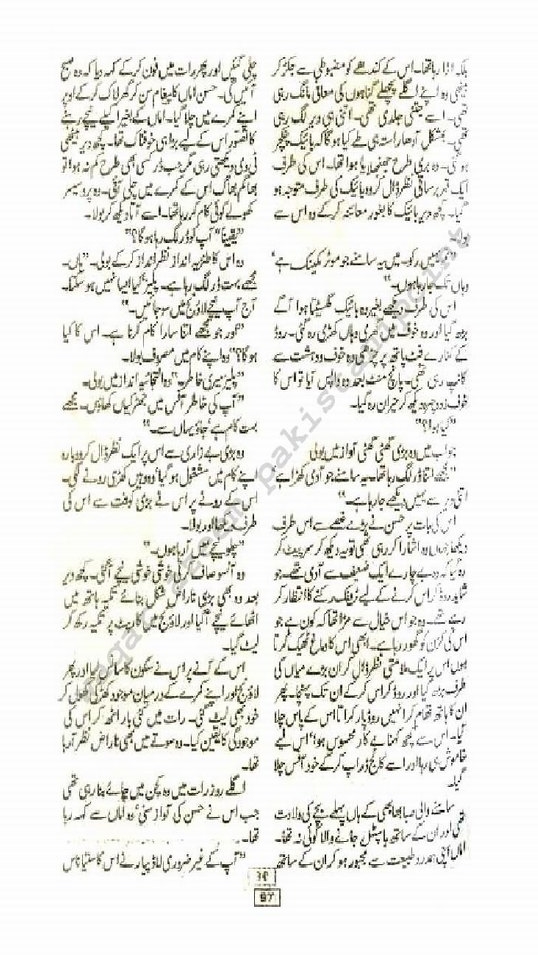 بلکہ اڑا رہا تھا۔ اس کے کندھے کو مضبوطی سے جکڑ کر
بیٹھی وہ اپنے اگلے پچھلے گناہوں کی معافی مانگ رہی
تھی۔ اسے جتنی جلدی تھی۔ اتنی ہی دیر لگ رہی
تھی۔ بمشکل آدھا راستہ ہی طے کیا ہو گا کہ بائیک پنکچر
ہو گئی۔ وہ بری طرح جھنجلایا ہوا تھا۔ اس کی طرف
ایک قہر برساتی نظر ڈال کر وہ بائیک کی طرف متوجہ ہو
گیا۔ کچھ دیر بائیک کا بغور معائنہ کر کے وہ اس سے
بولا۔
"تم یہیں رکو۔ میں یہ سامنے جو موٹر مکینک ہے'
وہاں تک جا رہا ہوں۔"
اس کی طرف دیکھے بغیر وہ بائیک گھسیٹتا ہوا آگے
بڑھ گیا اور وہ خوف میں گھری وہاں کھڑی رہ گئی۔ روڈ
کے کنارے فٹ پاتھ پر کھڑی وہ خوف و دہشت سے
کانپ رہی تھی۔ پانچ منٹ بعد وہ واپس آیا تو اس کا
خوف زدہ چہرہ دیکھ کر حیران رہ گیا۔
"کیا ہوا؟"
جواب میں وہ بڑی گھٹی گھٹی آواز میں بولی
"مجھے اتنا ڈر لگ رہا تھا۔ یہ سامنے جو آدمی کھڑا ہے'
اتنی دیر سے یہیں دیکھے جا رہا ہے۔"
اس کی بات پر حسن نے بڑے غصے سے اس طرف
دیکھا جہاں وہ اشارا کر رہی تھی تو یہ دیکھ کر سر پیٹ کر
رہ گیا کہ وہ بے چارے ایک ضعیف سے آدمی تھے۔ جو
شاید روڈ کراس کرنے کے لیے ٹریفک رکنے کا انتظار کر
رہے تھے۔ وہ جو اس خیال سے مڑا تھا کہ کون ہے جو
اس کی کزن کو گھور رہا ہے۔ ابھی اس کا دماغ ٹھیک کرتا
ہوں اس پر ایک ملامتی نظر ڈال کر ان بڑے میاں کی
طرف بڑھ گیا اور روڈ کراس کر کے ان تک پہنچا۔ پھر
ان کا ہاتھ تھام کر انہیں روڈ پار کراتا اس کے پاس چلا
گیا۔ اس سے کچھ کہنا بے کار محسوس ہوا' اس لیے
خاموش ہی رہا اور اسے کالج ڈراپ کر کے خود آفس چلا
گیا۔
سامنے والی صبا بھابھی کے ہاں پہلے بچے کی ولادت
تھی اور ان کے ساتھ ہاسپٹل جانے والا کوئی نہ تھا۔
اماں اپنی ہمدرد طبیعت سے مجبور ہو کر ان کے ساتھ
چلی گئیں اور پھر رات میں فون کر کے کہہ دیا کہ وہ صبح
آئیں گی۔ حسن اماں کا پیغام سن کر گھر لاک کر کے اوپر
اپنے کمرے میں چلا گیا۔ اماں کے بغیر اکیلے نیچے رہنے
کا تصور اس کے لیے بڑا ہی خوفناک تھا۔ کچھ دیر بیٹھی
ٹی وی دیکھتی رہی مگر جب ڈر کسی بھی طرح کم نہ ہوا تو
بھاگم بھاگ اس کے کمرے میں چلی آئی۔ وہ کمپیوٹر
کھولے کوئی کام کر رہا تھا۔ اسے آتا دیکھ کر بولا۔
"یقیناً" آپ کو ڈر لگ رہا ہو گا؟"
وہ اس کا طنزیہ انداز نظر انداز کر کے بولی۔ "ہاں۔
مجھے بہت ڈر لگ رہا ہے۔ پلیز کیا ایسا نہیں ہو سکتا۔
آج آپ نیچے لاؤنج میں سو جائیں۔"
"اور جو مجھے اتنا سارا کام کرنا ہے۔ اس کا کیا
ہو گا؟" وہ اپنے کام میں مصروف بولا۔
"پلیز میری خاطر۔" وہ التجائیہ انداز میں بولی۔
"آپ کی خاطر آفس میں جھڑکیاں کھاؤں۔ مجھے
بہت کام ہے' جاؤ یہاں سے۔"
وہ بڑی بے زاری سے اس پر ایک نظر ڈال کر دوبارہ
اپنے کام میں مشغول ہو گیا' وہ وہیں کھڑی رونے لگی۔
اس کے رونے پر اس نے بڑی کوفت سے اس کی
طرف دیکھا اور بولا۔
"چلو نیچے میں آ رہا ہوں۔"
وہ آنسو صاف کرتی خوشی خوشی نیچے آ گئی۔ کچھ دیر
بعد وہ بھی بڑی ناراض شکل بنائے تکیہ ہاتھ میں
اٹھائے نیچے آ گیا اور لاؤنج میں کارپٹ پر تکیہ رکھ کر
لیٹ گیا۔
اس کے آنے پر اس نے سکون کا سانس لیا اور پھر
لاؤنج اور اپنے کمرے کے درمیان موجود کھڑکی کھول کر
خود بھی لیٹ گئی۔ رات میں کئی بار اٹھ کر اس کی
موجودگی کا یقین کیا۔ وہ سوتے میں بھی ناراض نظر آ رہا
تھا۔
اگلے روز رات میں وہ کچن میں چائے بنا رہی تھی
جب اس نے حسن کی آواز سنی' وہ اماں سے کہہ رہا
تھا۔
"آپ کے غیر ضروری لاڈ پیار نے اس کا ستیا ناس
97